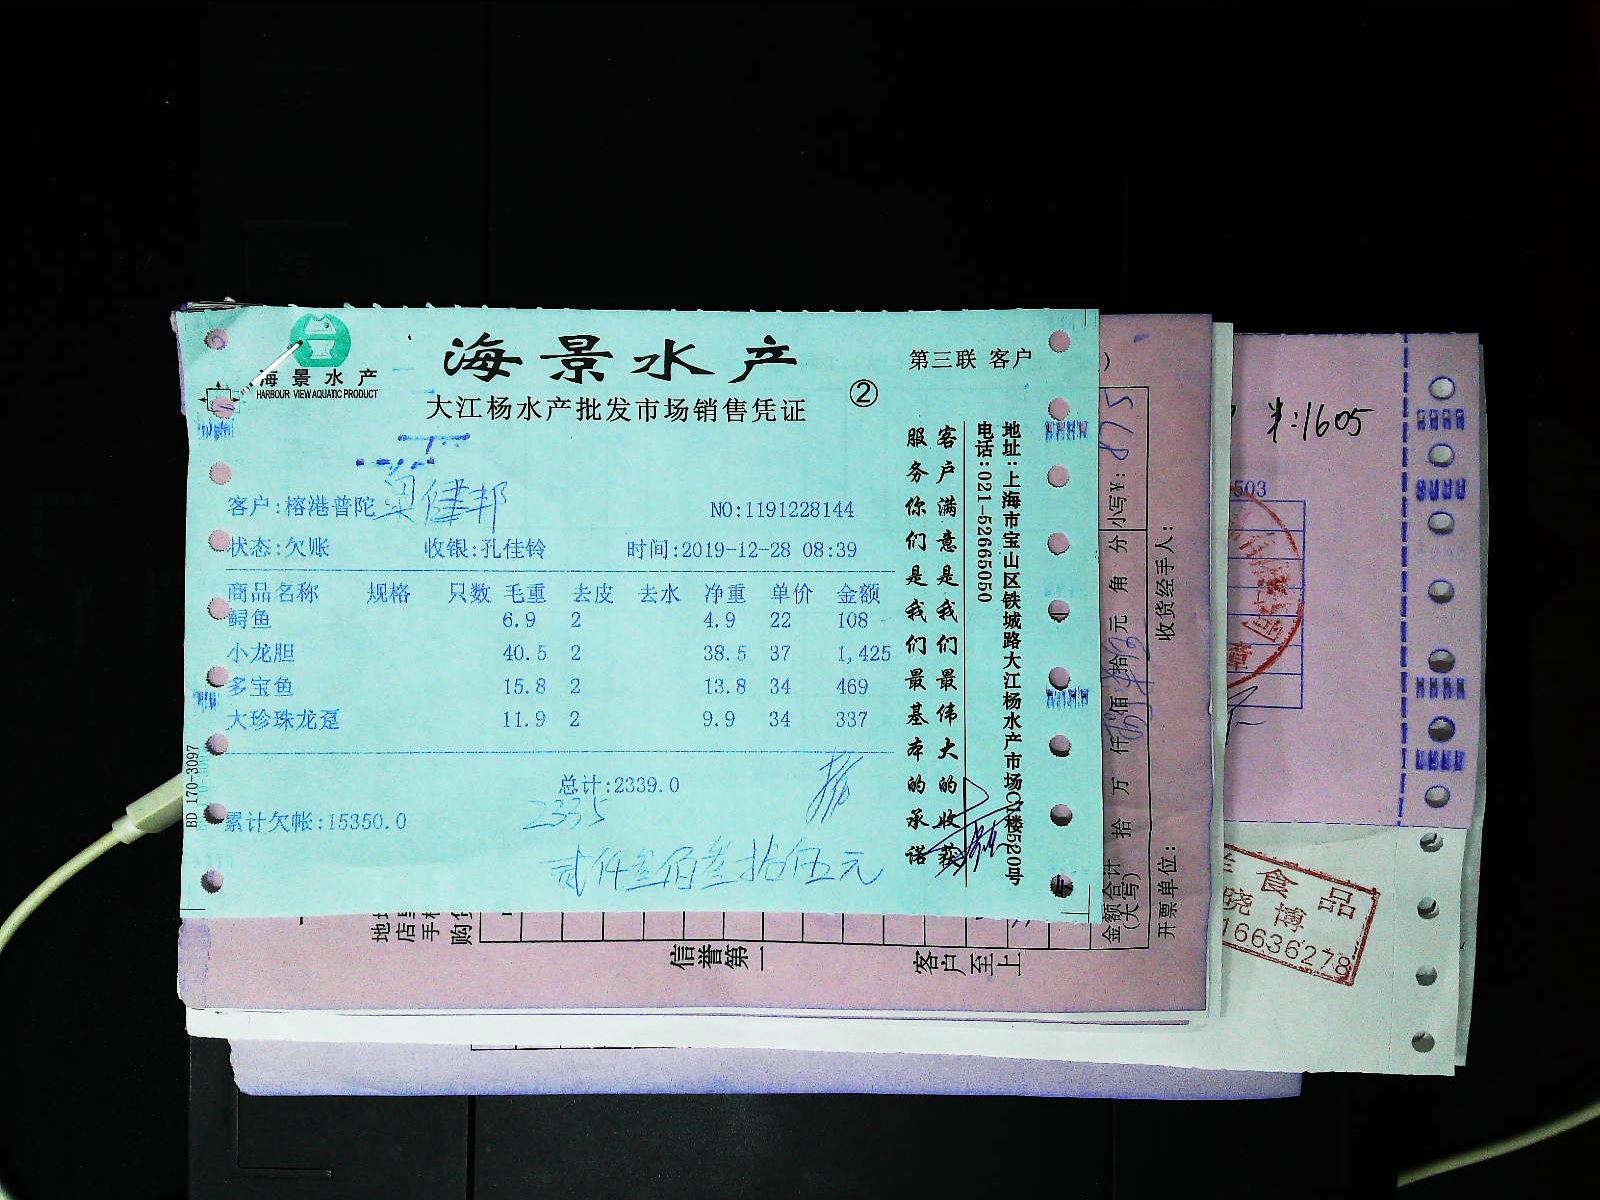 海景水产
HARBOUR VIEW AQUATIC PRODUCT
海景水产
第三联 客户
大江杨水产批发市场销售凭证
②
客户:榕港普陀 梁健邦
NO:1191228144
状态:欠账 收银:孔佳铃 时间:2019-12-28 08:39
商品名称 规格 只数 毛重 去皮 去水 净重 单价 金额
鲟鱼 6.9 2 4.9 22 108
小龙胆 40.5 2 38.5 37 1,425
多宝鱼 15.8 2 13.8 34 469
大珍珠龙趸 11.9 2 9.9 34 337
总计:2339.0
2335
累计欠帐:15350.0
贰仟叁佰叁拾伍元
BD 170-3097
客户满意是我们最伟大的收获
服务你们是我们最基本的承诺
地址:上海市宝山区铁城路大江杨水产市场C1楼520号
电话:021-52665050
小写¥: 875
拾万仟佰拾元角分
金额合计
(大写)
收货经手人:
开票单位:
信誉第一
客户至上
半:1605
503
食品
晓博
16636278